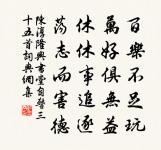 百樂不足玩
萬好俱無益
休休事追逐
蕩志而害德
陳淳隆興書堂自警三
十五首詞典網集